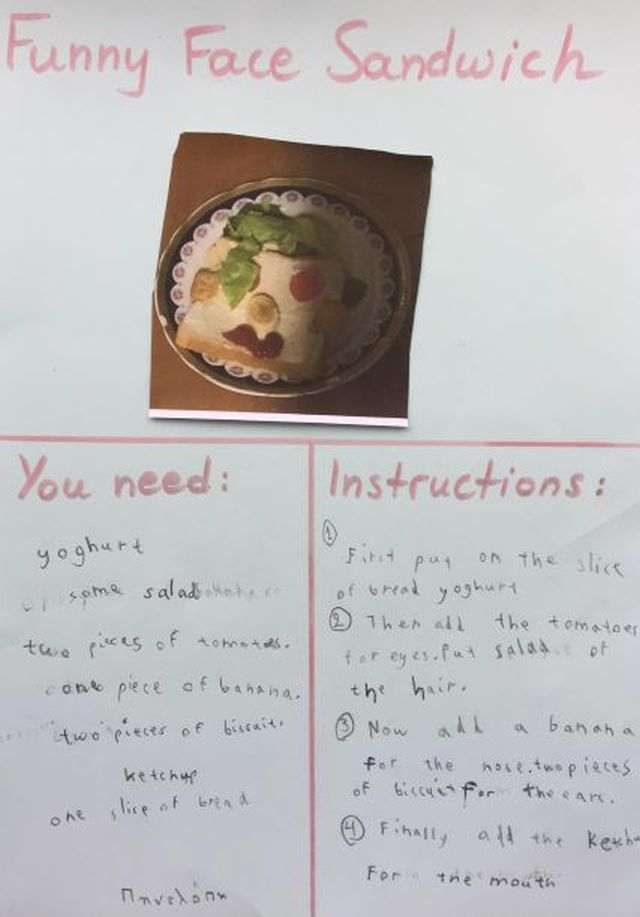 Funny Face Sandwich
You need:
yoghurt
some salad
two pieces of tomatoes.
one piece of banana.
two pieces of biscuit.
ketchup
one slice of bread
Πηνελόπη
Instructions:
① First put on the slice
of bread yoghurt
② Then add the tomatoes
for eyes. Put salad of
the hair.
③ Now add a banana
for the nose. two pieces
of biccuit for the ears.
④ Finally add the ketchu
For the mouth